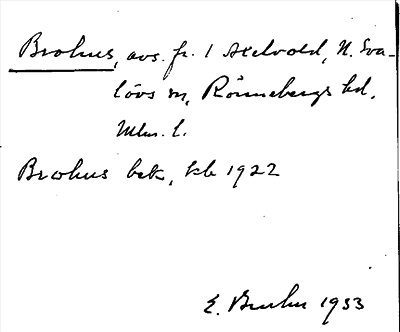 Brohus, avs. fr. 1 Axelvold, N. Sva-
lövs sn, Rönnebergs hd.
Mlm. l.
Brohus bek, kb 1922
E. Bruhn 1933